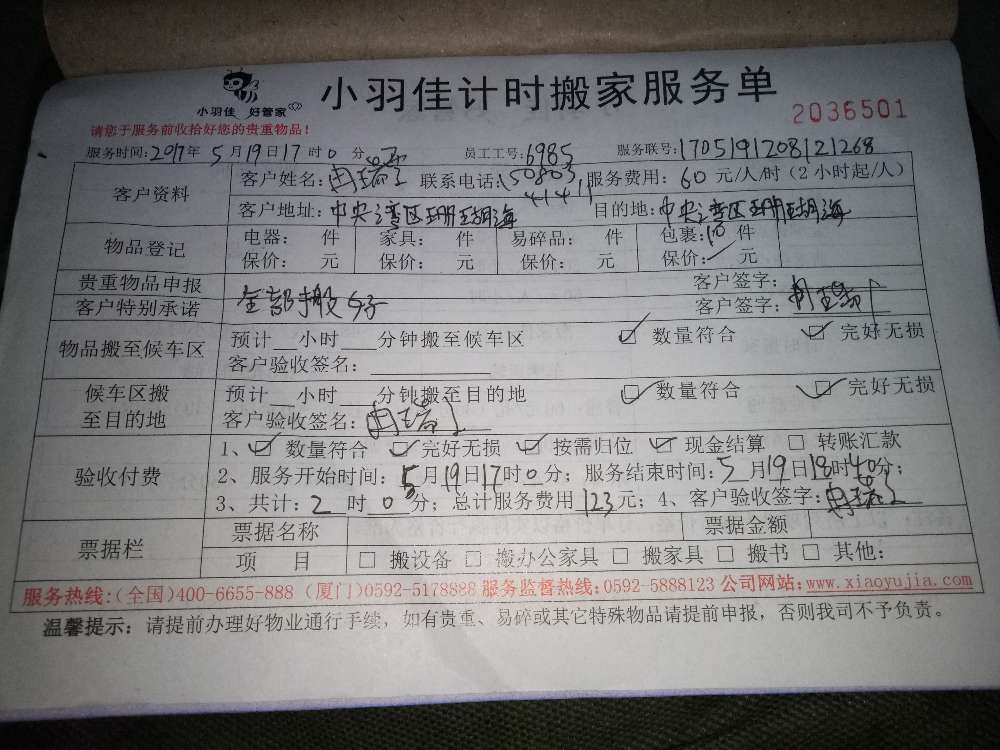 小羽佳 好管家
小羽佳计时搬家服务单
2036501
请您于服务前收拾好您的贵重物品！
服务时间：2017年5月19日17时0分 员工工号：6985 服务联号：1705191208121268
客户资料
客户姓名：冉瑞 联系电话：150803 服务费用：60元/人/时（2小时起/人）
4141
客户地址：中央湾区珊瑚海 目的地：中央湾区珊瑚海
物品登记
电器： 件 家具： 件 易碎品： 件 包裹：10件
保价： 元 保价： 元 保价： 元 保价： 元
贵重物品申报 客户签字：
客户特别承诺 全部搬 客户签字：
物品搬至候车区
预计__小时___分钟搬至候车区 ☑ 数量符合 ☑ 完好无损
客户验收签名：
候车区搬至目的地
预计__小时___分钟搬至目的地 ☑ 数量符合 ☑ 完好无损
客户验收签名：冉瑞
验收付费
1、☑ 数量符合 ☑ 完好无损 ☑ 按需归位 ☑ 现金结算 □ 转账汇款
2、服务开始时间：5月19日17时0分；服务结束时间：5月19日18时40分；
3、共计：2时0分；总计服务费用123元；4、客户验收签字：冉瑞
票据栏
票据名称 票据金额
项 目 □ 搬设备 □ 搬办公家具 □ 搬家具 □ 搬书 □ 其他：
服务热线：(全国)400-6655-888 (厦门)0592-5178888 服务监督热线：0592-5888123 公司网站：www.xiaoyujia.com
温馨提示：请提前办理好物业通行手续，如有贵重、易碎或其它特殊物品请提前申报，否则我司不予负责。